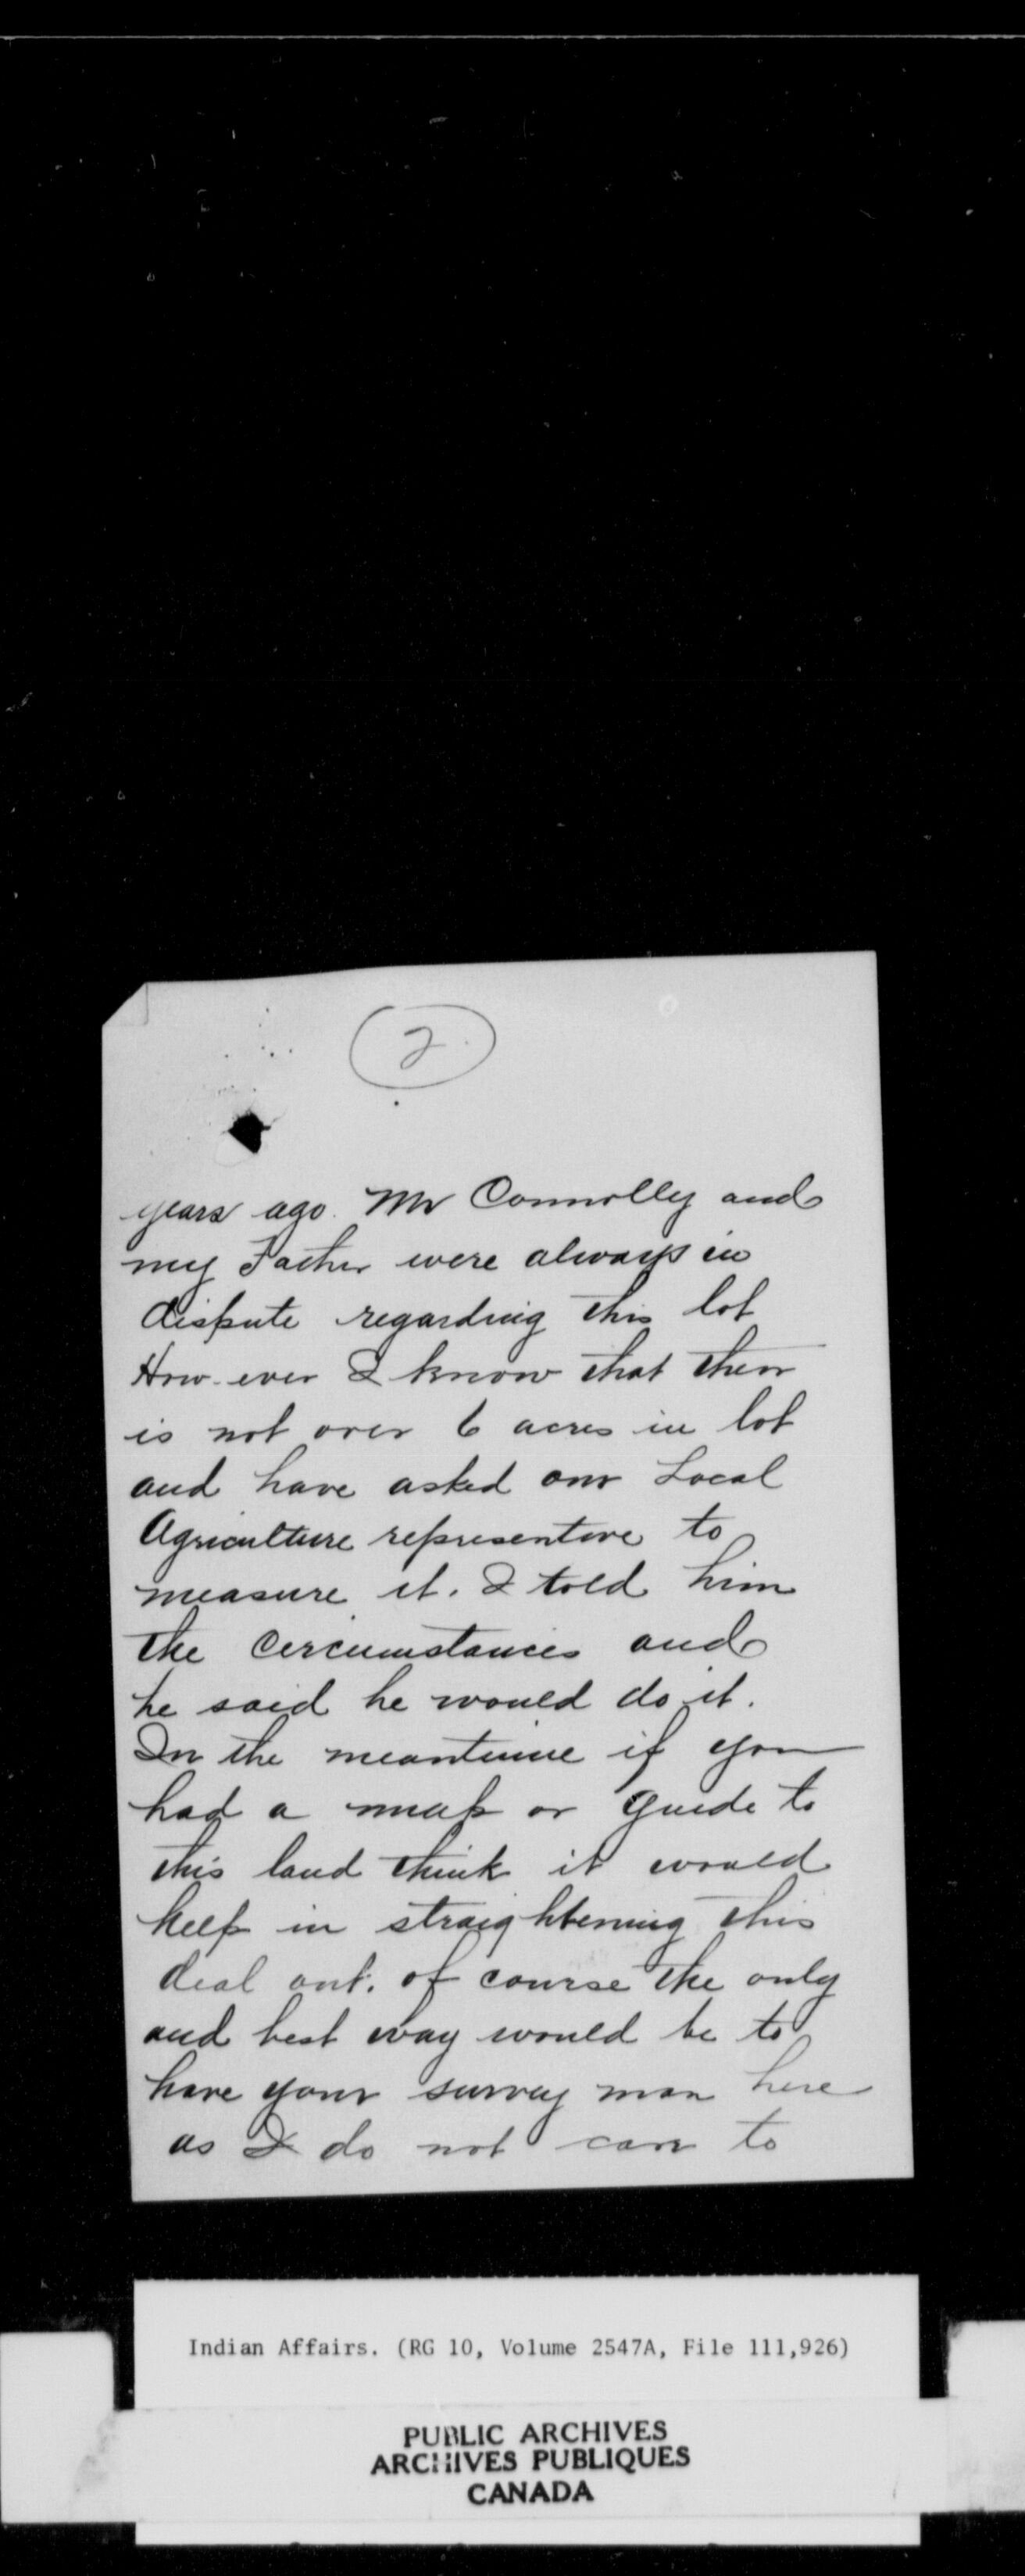 2.
years ago. Mr Connolly and
my Father were always in
dispute regarding this lot
How-ever I know that there
is not over 6 acres in lot
and have asked our Local
Agriculture representive to
measure it. I told him
the Circumstances and
he said he would do it.
In the meantime if you
had a map or guide to
this land think it would
help in straightening this
deal out. of course the only
and best way would be to
have your survey man here
as I do not care to
Indian Affairs. (RG 10, Volume 2547A, File 111,926)
PUBLIC ARCHIVES
ARCHIVES PUBLIQUES
CANADA